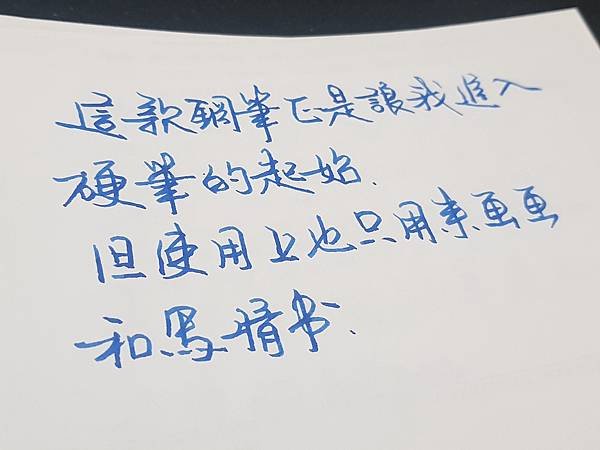 這款鋼筆正是讓我進入
硬筆的起始.
但使用上也只用来画画
和寫情书.